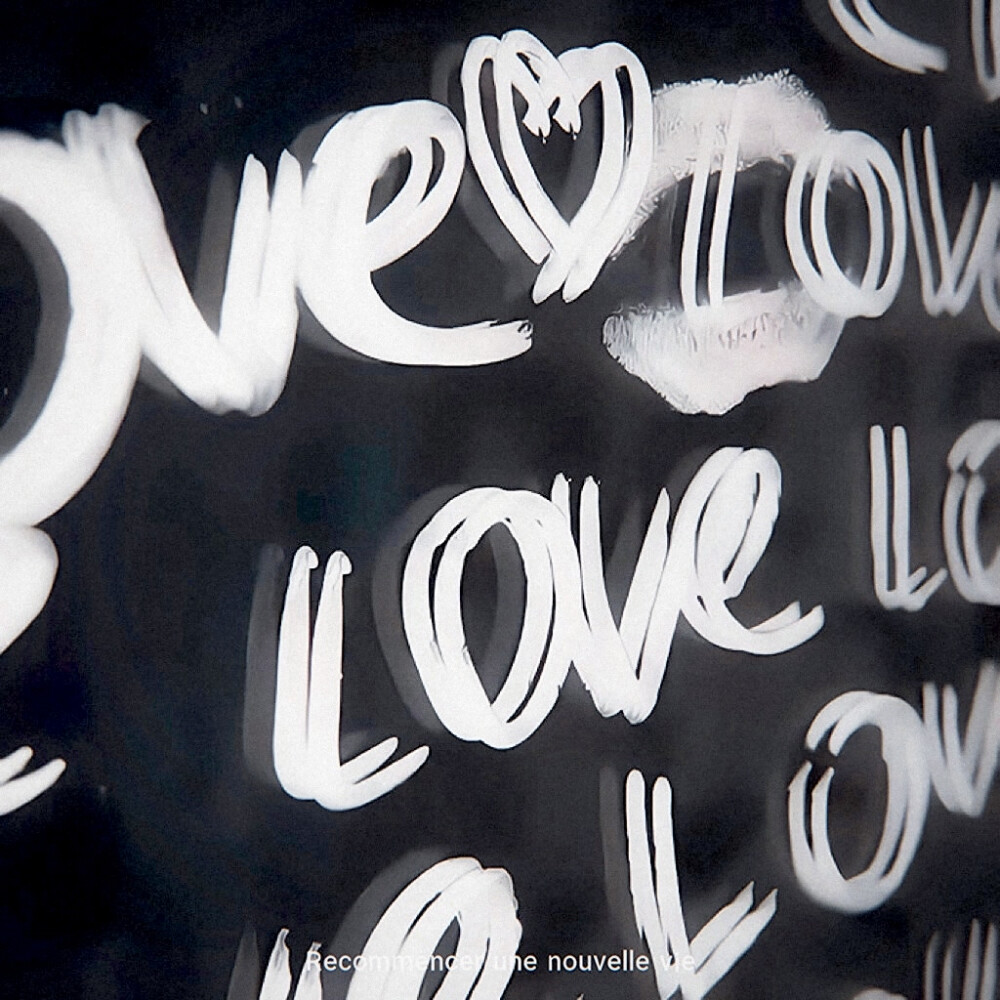 ove Love
Love Lo
Lov
L
Recommencer une nouvelle vie